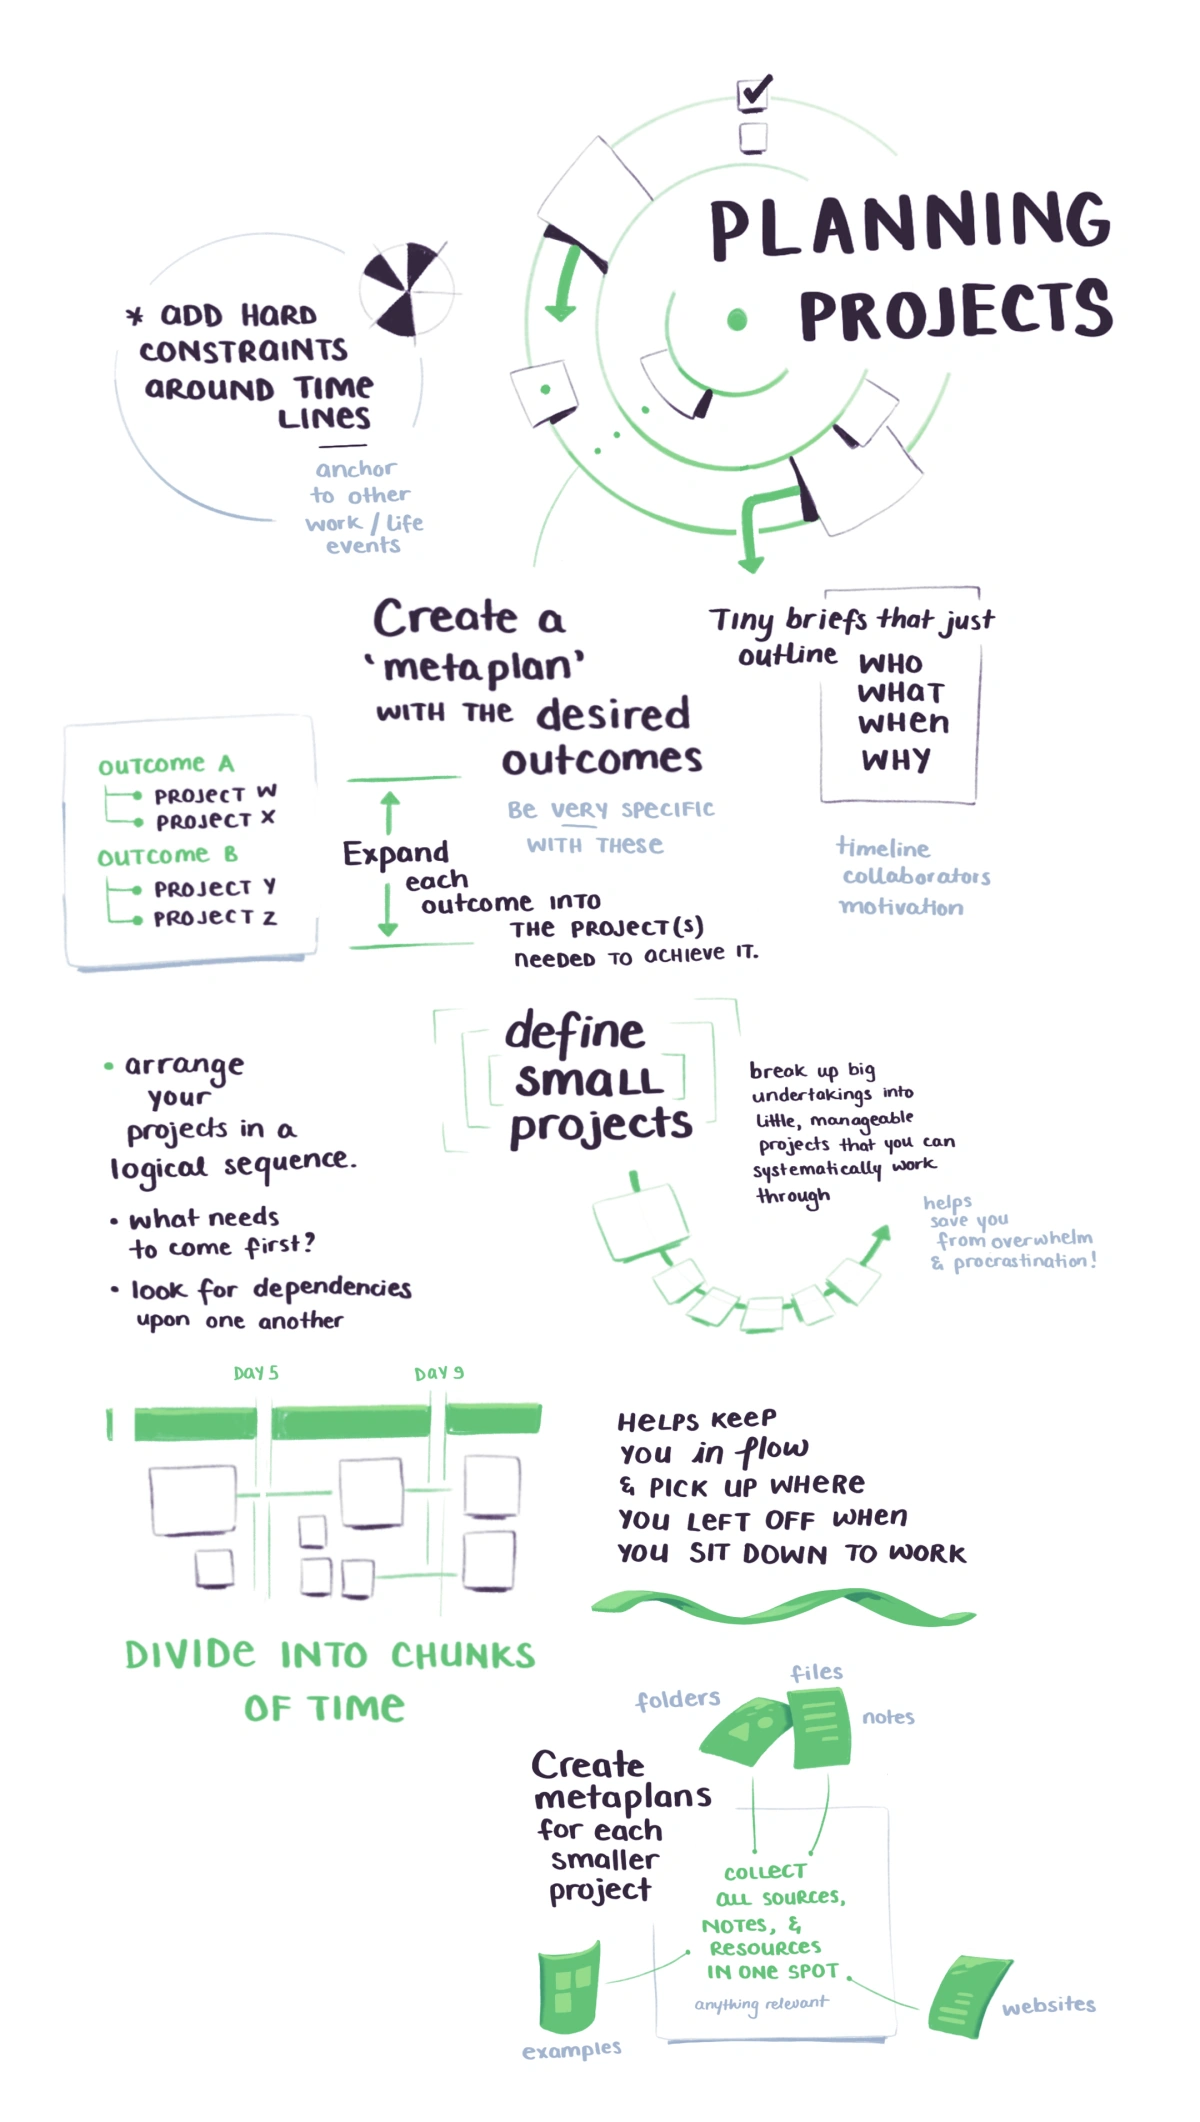 PLANNING
PROJECTS
* ADD HARD
CONSTRAINTS
AROUND TIME
LINES
anchor
to other
work / life
events
Create a
'metaplan'
WITH THE desired
outcomes
Be VERY SPECIFIC
WITH THESE
Tiny briefs that just
outline WHO
WHAT
WHEN
WHY
timeline
collaborators
motivation
OUTCOME A
PROJECT W
PROJECT X
OUTCOME B
PROJECT Y
PROJECT Z
Expand
each
outcome INTO
THE PROJECT(S)
NEEDED TO ACHIEVE IT.
define
SMALL
projects
break up big
undertakings into
little, manageable
projects that you can
systematically work
through
helps
save you
from overwhelm
& procrastination!
• arrange
your
projects in a
logical sequence.
• what needs
to come first?
• look for dependencies
upon one another
DAY 5
DAY 9
DIVIDE INTO CHUNKS
OF TIME
HELPS KEEP
YOU in flow
& PICK UP WHERE
YOU LEFT OFF WHEN
YOU SIT DOWN TO WORK
folders
files
notes
Create
metaplans
for each
smaller
project
COLLECT
ALL SOURCES,
NOTES, &
RESOURCES
IN ONE SPOT
anything relevant
examples
websites